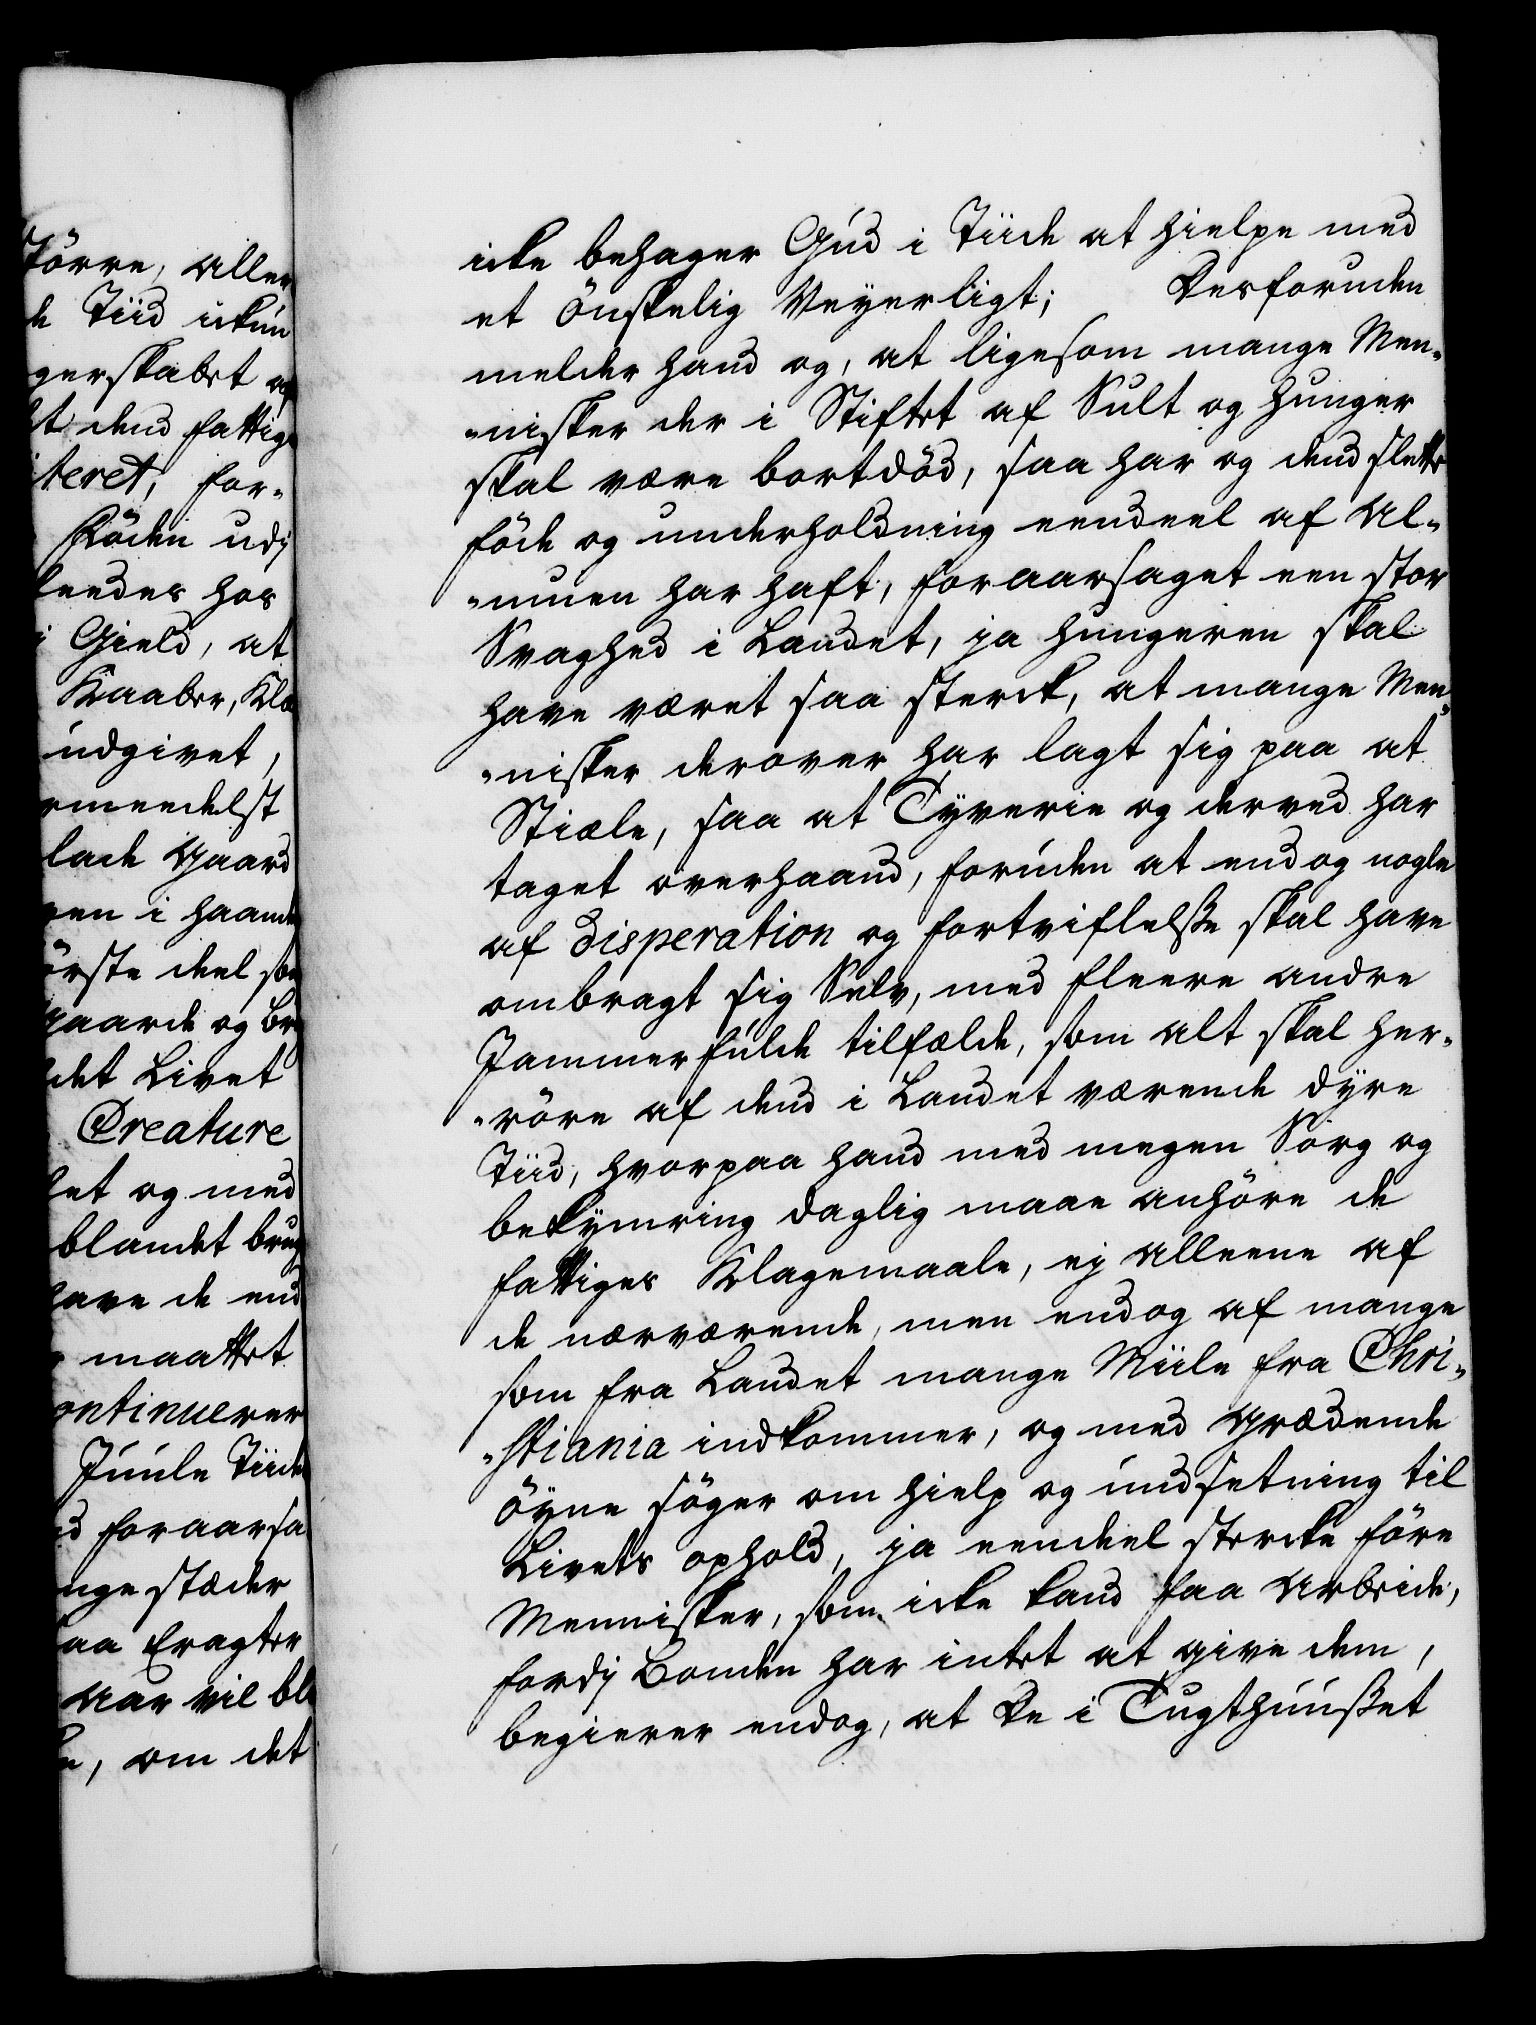 Törre, aller
de Tiid ickun
gerskabet og
t dend fattig
teret, for-
Föden udj
leedes hos
i Gield, at
Kaaber, Klæ
udgivet,
rmeedelst
lade gaard
en i haand
örste deel so
gaarde og br
det Livet
Creature
et og med
blandet brug
have de end
maattet
ontinuerer
Juule Tiide
d foraarsa
nge stæder
aa fragter
aar vil bl
e, om det
icke behager Gud i Tiide at hielpe med
et önskelig Veyerligt; Desforuden
melder hand og, at ligesom mange Men-
-nisker der i Stiftet af Sult og hunger
skal være bortdöd, saa har og dend slette
föde og underholdning eendeel af Al-
-muen har haft, foraarsaget een stor
Svaghed i Landet, ja hungeren skal
have været saa sterck, at mange Men-
-nisker derover har lagt sig paa at
Stiæle, saa at Tyverie og derved har
taget overhaand, foruden at endog nogle
af Disperation og fortviflelsse skal have
ombragt sig Selv, med fleere andre
Jammerfulde tilfælde, som alt skal her-
-röre af dend i Landet værende dyre
Tiid, hvorpaa hand med megen Sorg og
bekymring daglig maae anhöre de
fattiges Klagemaale, ej alleene af
de nærværende, men endog af mange
som fra Landet mange Miile fra Chri-
-stiania indkommer, og med grædende
öyne söger om hielp og undsetning til
Livets ophold, ja eendeel stercke före
Mennisker, som icke kand faa Arbeide,
fordj Bonden har intet at give dem,
begierer endog, at De i Tugthuusset